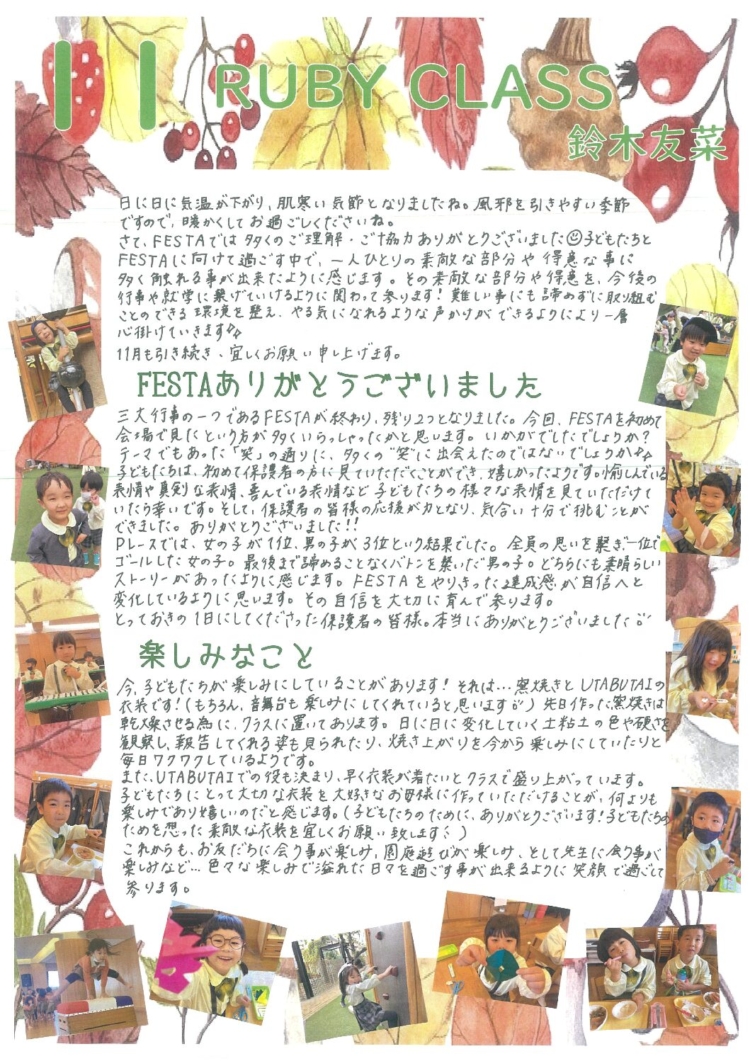 11 RUBY CLASS
鈴木友菜
日に日に気温が下がり、肌寒い気節となりましたね。風邪を引きやすい季節
ですので、暖かくしてお過ごしくださいね。
さて、FESTAでは多くのご理解・ご協力ありがとうございました☺子どもたちと
FESTAに向けて過ごす中で、一人ひとりの素敵な部分や得意な事に
多く触れる事が出来たように感じます。その素敵な部分や得意を、今後の
行事や就学に繋げていけるように関わって参ります！難しい事にも諦めずに取り組む
ことのできる環境を整え、やる気になれるような声かけができるようにより一層
心掛けていきます
11月も引き続き、宜しくお願い申し上げます。
FESTAありがとうございました
三大行事の一つであるFESTAが終わり、残り2つとなりました。今回、FESTAを初めて
会場で見たという方が多くいらっしゃったかと思います。いかがでしたでしょうか？
テーマでもあった「笑」の通りに、多くの"笑"に出会えたのではないでしょうか
子どもたちは、初めて保護者の方に見ていただくことができ、嬉しかったようです。愉しんでいる
表情や真剣な表情、喜んでいる表情など子どもたちの様々な表情を見ていただけて
いたら幸いです。そして、保護者の皆様の応援が力となり、気合い十分で挑むことが
できました。ありがとうございました!!
Pレースでは、女の子が1位、男の子が3位という結果でした。全員の思いを繋ぎ、一位で
ゴールした女の子。最後まで諦めることなくバトンを繋いだ男の子。どちらにも素晴らしい
ストーリーがあったように感じます。FESTAをやりきった達成感が自信へと
変化しているように思います。その自信を大切に育んで参ります。
とっておきの1日にしてくださった保護者の皆様。本当にありがとうございました
楽しみなこと
今、子どもたちが楽しみにしていることがあります！それは…窯焼きとUTABUTAIの
衣装です！(もちろん、音舞台も楽しみにしてくれていると思います)先日作った窯焼きは
乾燥させる為に、クラスに置いてあります。日に日に変化していく土粘土の色や硬さを
観察し、報告してくれる姿も見られたり、焼き上がりを今から楽しみにしていたりと
毎日ワクワクしているようです。
また、UTABUTAIでの役も決まり、早く衣装が着たいとクラスで盛り上がっています。
子どもたちにとって大切な衣装を大好きなお母様に作っていただけることが、何よりも
楽しみであり嬉しいのだと感じます。(子どもたちのために、ありがとうございます！子どもたちの
ためを思った素敵な衣装を宜しくお願い致します)
これからも、お友だちに会う事が楽しみ、園庭遊びが楽しみ、そして先生に会う事が
楽しみなど…色々な楽しみで溢れた日々を過ごす事が出来るように笑顔で過ごして
参ります。